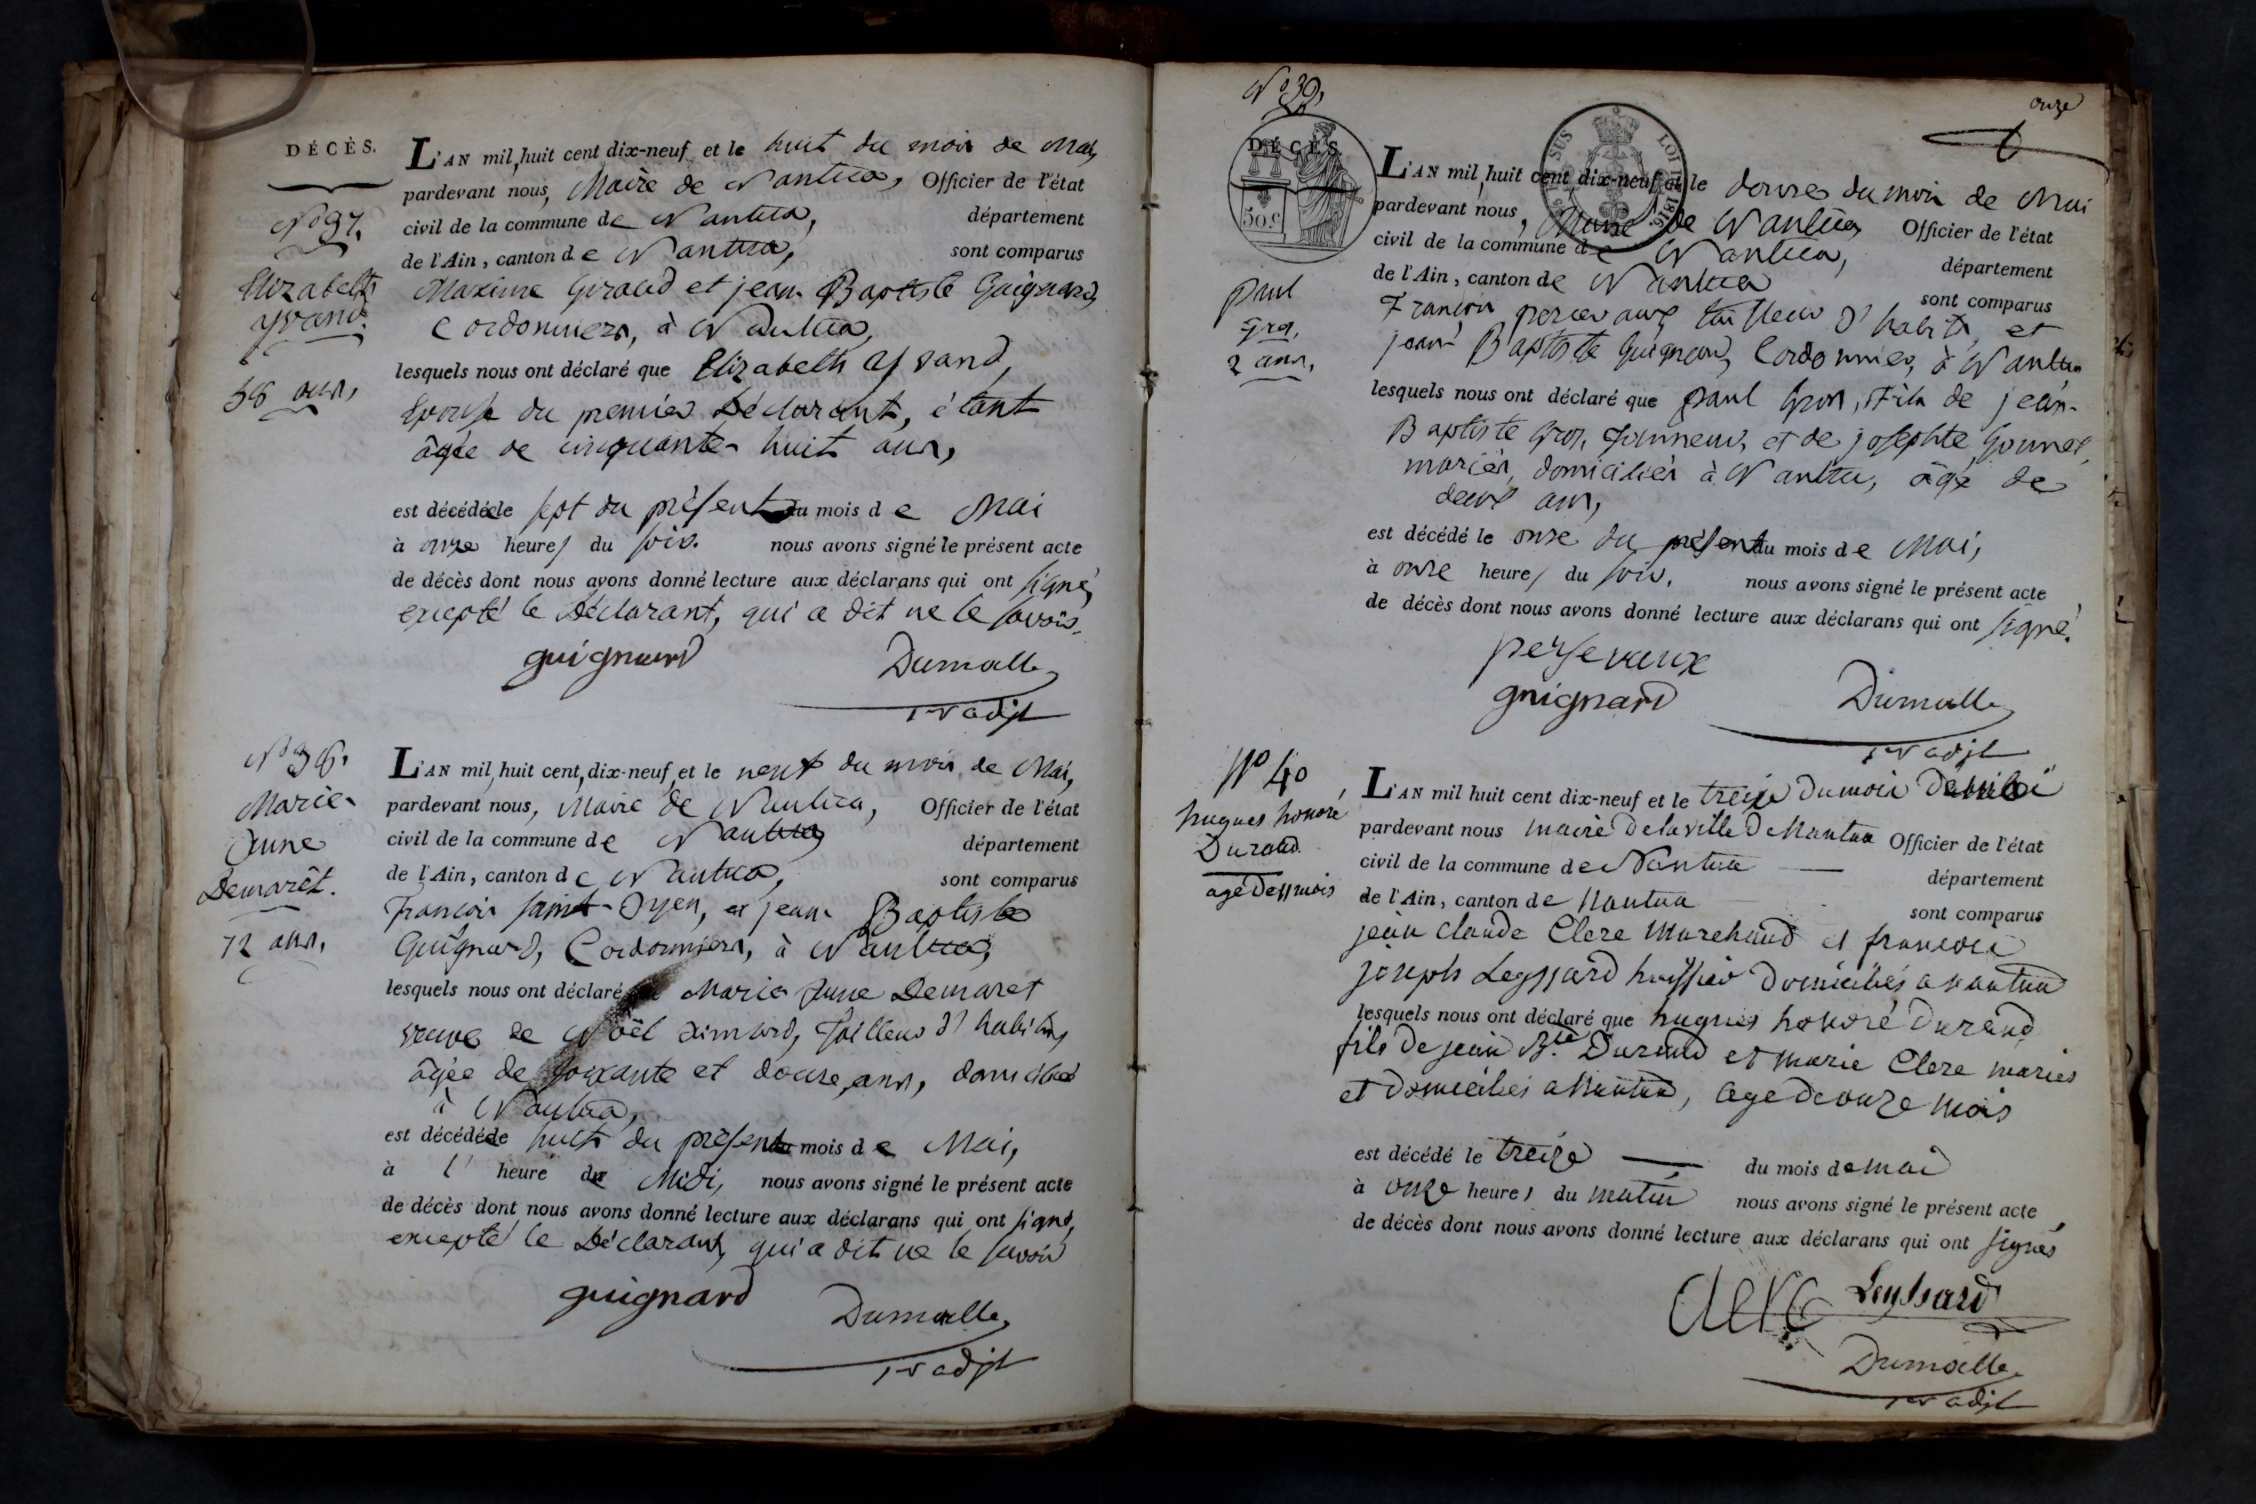 DÉCÈS.
N° 37.
Elizabeth
yvand.
58 ans,
L'AN mil huit cent dix-neuf et le huit du mois de Mai,
pardevant nous, Maire de Nantua, Officier de l'état
civil de la commune de Nantua, département
de l'Ain, canton de Nantua, sont comparus
Maxime Giraud et jean-Baptiste Guignard,
Cordonniers, à Nantua,
lesquels nous ont déclaré que Elizabeth yvand,
Epouse du premier Déclarant, étant
âgée de cinquante-huit ans,
est décédée le sept du présent du mois de Mai
à onze heures du soir. nous avons signé le présent acte
de décès dont nous avons donné lecture aux déclarans qui ont signé,
excepté le Déclarant, qui a dit ne le savoir.
guignard Dumolle
1er adjt
N° 38.
Marie-
Anne
Demarêt.
72 ans,
L'AN mil huit cent dix-neuf et le neuf du mois de Mai,
pardevant nous, Maire de Nantua, Officier de l'état
civil de la commune de Nantua département
de l'Ain, canton de Nantua, sont comparus
françois saint-Oyen, et jean-Baptiste
Guignard, Cordonniers, à Nantua,
lesquels nous ont déclaré Marie Anne Demaret
veuve de Noël tailleur d'habits,
âgée de soixante et douze ans, domiciliée
à Nantua,
est décédée le huit du présent du mois de Mai,
à l' heure de Midi, nous avons signé le présent acte
de décès dont nous avons donné lecture aux déclarans qui ont signé,
excepté le Déclarant, qui a dit ne le savoir
guignard Dumolle
1er adjt
N° 39,
onze
DÉCÈS
50 c
SUS LOI DE 1816.
paul
gros,
2 ans,
L'AN mil huit cent dix-neuf et le douze du mois de Mai
pardevant nous, Maire de Nantua, Officier de l'état
civil de la commune de Nantua, département
de l'Ain, canton de Nantua sont comparus
françois percevaux tailleur d'habits, et
jean Baptiste Guignard, Cordonnier, à Nantua
lesquels nous ont déclaré que paul gros, Fils de jean-
Baptiste gros, tanneur, et de josephte
mariés, domiciliés à Nantua, âgé de
deux ans,
est décédé le onze du présent du mois de Mai,
à onze heures du soir. nous avons signé le présent acte
de décès dont nous avons donné lecture aux déclarans qui ont signé.
persevaux
guignard Dumolle
1er adjt
N° 40
hugues honoré
Durand
agé de 11 mois
L'AN mil huit cent dix-neuf et le treize du mois de mai
pardevant nous maire de la ville de Nantua Officier de l'état
civil de la commune de Nantua département
de l'Ain, canton de Nantua sont comparus
jean claude Clerc Marchand et françois
joseph Leyssard huissier domiciliés a nantua
lesquels nous ont déclaré que hugues honoré Durand
fils de jean Bte Durand et marie Clerc mariés
et domiciliés a Nantua, agé de onze mois
est décédé le treize du mois de mai
à onze heures du matin nous avons signé le présent acte
de décès dont nous avons donné lecture aux déclarans qui ont signés
Clerc Leyssard
Dumolle
1er adjt